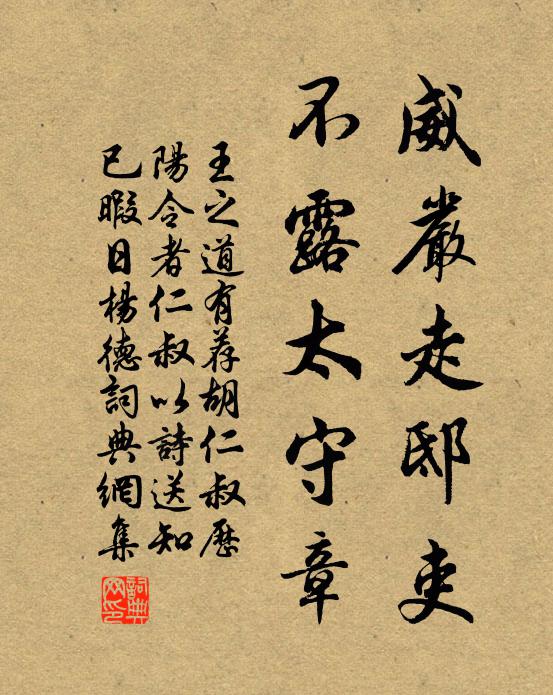 威嚴走邸吏
不露太守章
王之道有荐胡仁叔歷
陽令者仁叔以詩送知
已暇日楊德詞典網集
詞典网印